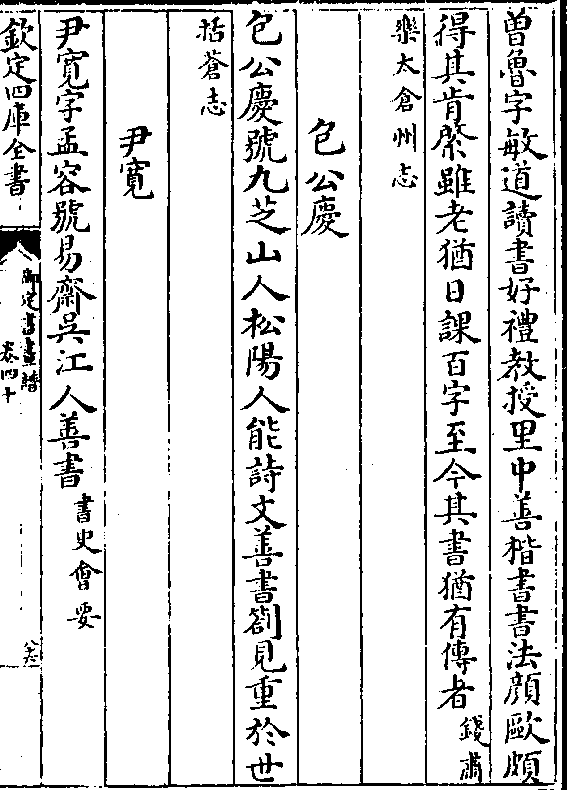 曽魯字敏道讀書好禮教授里中善楷書書法顔歐頗
得其肯綮雖老猶日課百字至今其書猶有傳者錢肅
樂太倉州志
包公慶
包公慶號九芝山人松陽人能詩文善書劄見重於世
括蒼志
尹寬
尹寬字孟容號易齋吳江人善書書史會要
欽定四庫全書
御定書畫譜
卷四十